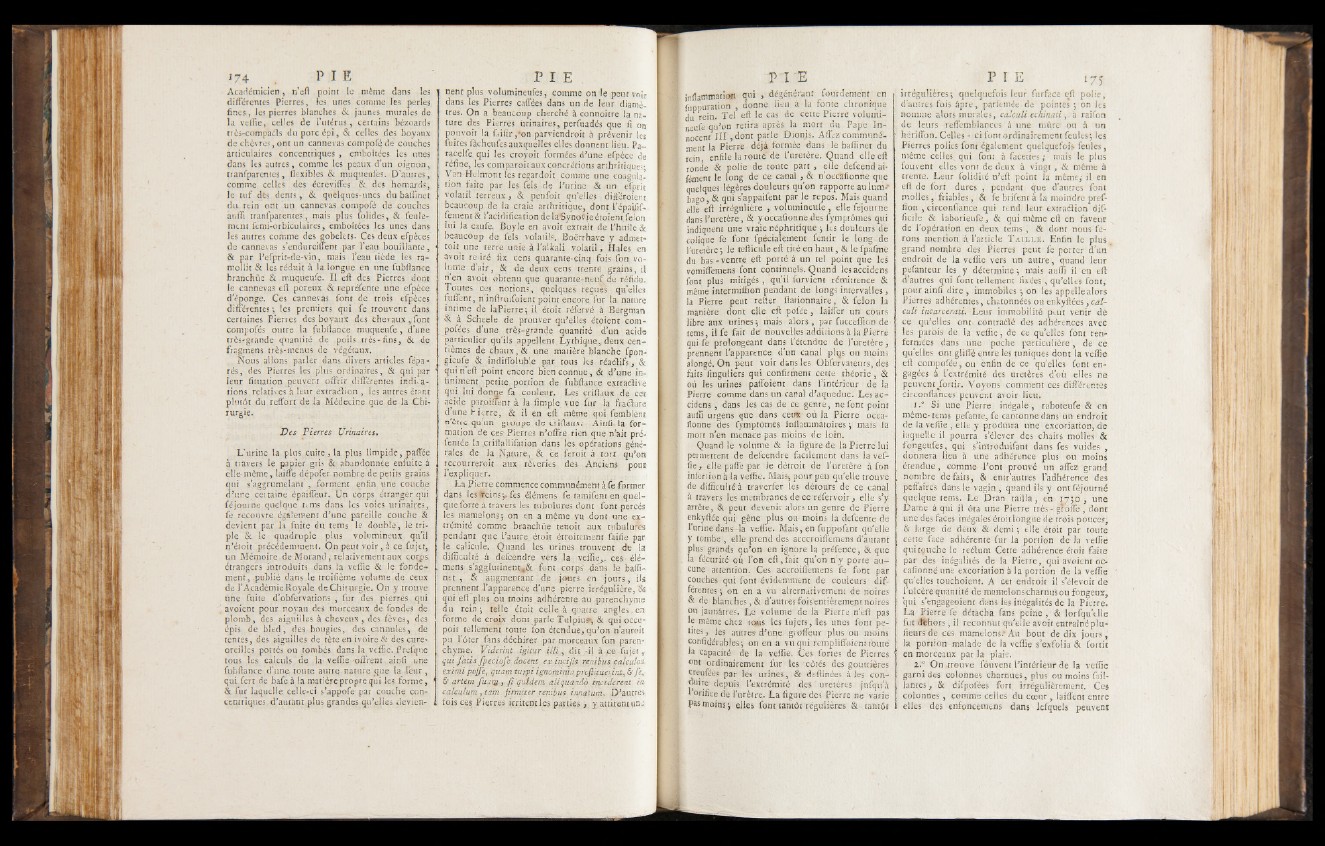 174 PIE
Académicien, n'est point le même dans les
différentes Pierres, les unes comme les perles
fines, les pierres blanches & jaunes murales de
la vessie, celles de l'utérus, certains bézoards
très-compacts du porc épi, & celles des boyaux
de chèvres, ont un cannevas composé de couches
articulaires concentriques, emboîtées les unes
dans les autres, comme les peaux d'un oignon,
transparentes, flexibles & muqueuses. D'autres,
comme celles des écrevisses & des homards,
le tuf des dents, & quelques-unes du bassinet
du rein ont un cannevas composé de couches
aussi transparentes, mais plus solides, & seule-
ment semi-orbiculaires, emboîtées les unes dans
les autres comme des gobelets. Ces deux espèces
de cannevas s'endurcissent par l'eau bouillante,
& par l'esprit-de-vin, mais l'eau tiède les ra-
mollit & les réduit à la longue en une substance
branchue & muqueuse. Il est des Pierres dont
le cannevas est poreux & représente une espèce
d'éponge. Ces cannevas sont de trois espèces
différentes; les premiers qui se trouvent dans
certaines Pierres des boyaux des chevaux, sont
composés outre la substance muqueuse, d'une
très-grande quantité de poils très-fins, & de
fragmens très-menus de végétaux.
Nous allons parler dans divers articles sépa-
rés, des Pierres les plus ordinaires, & qui par
leur situation peuvent offrir différentes indica-
tions relatives à leur extraction, les autres étant
plutôt du ressort de la Médecine que de la Chi-
rurgie.
Des Pierres Urinaires.
L'urine la plus cuite, la plus limpide, passée
à travers le papier gris & abandonnée ensuite à
elle-même, laisse déposer nombre de petits grains
qui s'aggrumelant, forment enfin une couche
d'une certaine épaisseur. Un corps étranger qui
séjourne quelque tems dans les voies urinaires,
se recouvre également d'une pareille couche &
devient par la suite du tems le double, le tri-
ple & le quadruple plus volumineux qu'il
n'étoit précédemment. On peut voir, à ce sujet,
un Mémoire de Morand, relativement aux corps
étrangers introduits dans la vessie & le fonde-
ment, publié dans le troisième volume de ceux
de l'Académie Royale de Chirurgie. On y trouve
une suite d'observations, sur des pierres qui
avoient pour noyau des morceaux de sondes de
plomb, des aiguilles à cheveux, des fèves, des
épis de bled, des bougies, des cannules, de
tentes, des aiguilles de tête en ivoire & des cure-
oreilles portés ou tombés dans la vessie. Presque
tous les calculs de la vessie offrent ainsi une
substance d'une toute autre nature que la leur,
qui sert de base à la matière propre qui les forme,
& sur laquelle celle-ci s'appose par couche con-
centriques d'autant plus grandes qu'elles devien-
PIE
nent plus volumineuses, comme on le peut voir
dans les Pierres cassées dans un de leur diamè-
tres. On a beaucoup cherché à connoître la na-
ture des Pierres urinaires, persuadés que si on
pouvoit la saisir, on parviendroit à prévenir les
suites fâcheuses auxquelles elles donnent lieu. Pa-
racelse qui les croyoit formées d'une espèce de
résine, les comparoit aux concrétions arthritiques;
Van Helmont les regardoit comme une coagula-
tion faite par les sels de l'urine & un esprit
volatil terreux, & pensoit qu'elles différoient
beaucoup de la craie arthritique, dont l'épaissis-
sement & l'acidification de la Synovie étoient selon
lui la cause. Boyle en avoit extrait de l'huile &
beaucoup de sels volatils. Boërrhave y admet-
toit une terre unie à l'alkali volatil, Hales en
avoit retiré six cens quarante-cinq fois son vo-
lume d'air, & de deux cens trente grains, il
n'en avoit obtenu que quarante-neuf de résidu.
Toutes ces notions, quelques reçues qu'elles
fussent, n'instruisoient point encore sur la nature
intime de la Pierre; il étoit réservé à Bergman
& à Scheele de prouver qu'elles étoient com-
posées d'une très-grande quantité d'un acide
particulier qu'ils appellent Lythique, deux cen-
tièmes de chaux, & une matière blanche spon-
gieuse & indissoluble par tous les réactifs, &
qui n'est point encore bien connue, & d'une in-
finiment petite portion de substance extractive
qui lui donne sa couleur. Les cristaux de cet
acide paroissent à la simple vue sur la fracture
d'une Pierre, & il en est même qui semblent
n'être qu'un groupe de cristaux. Ainsi la for-
mation de ces Pierres n'offre rien que n'ait pré-
sentée la cristallisation dans les opérations géné-
rales de la Nature, & ce seroit à tort qu'on
recourreroit aux rêveries des Anciens pour
l'expliquer.
La Pierre commence communément à se former
dans les reins; ses élémens se tamisent en quel-
que sorte à travers les tubulures dont sont percés
les mamelons; on en a même vu dont une ex-
trémité comme branchue tenoit aux tubulures
pendant que l'autre étoit étroitement saisie par
le calicule. Quand les urines trouvent de la
difficulté à descendre vers la vessie, ces élé-
mens s'agglutinent & font corps dans le bassi-
net, & augmentant de jours en jours, ils
prennent l'apparence d'une pierre irrégulière, &
qui est plus ou moins adhérente au parenchyme
du rein; telle étoit celle à quatre angles, en
forme de croix dont parle Tulpius, & qui occu-
poit tellement toute son étendue, qu'on n'auroit
pu l'ôter sans déchirer par morceaux son paren-
chyme. Viderint igitur illi, dit-il à ce sujet,
qui satis spectose docent ex incisis renibus calculos
eximi posse, quam turpi ignominia prostituerint, & se,
& artem suam, si quidem aliquando inciderent in
calculum, tam firmiter renibus innatum. D'autres
fois ces Pierres irritent les parties, y attirent une
PIE
inflammation qui, dégénérant sourdement en
suppuration, donne lieu à la fonte chronique
du rein. Tel est le cas de cette Pierre volumi-
neuse qu'on retira après la mort du Pape In-
nocent III, dont parle Dionis. Assez communé-
ment la Pierre déjà formée dans le bassinet du
rein, enfile la route de l'uretère. Quand elle est
ronde & polie de toute part, elle descend ai-
sément le long de ce canal, & n'occasionne que
quelques légères douleurs qu'on rapporte au lum-
bago, & qui s'appaisent par le repos. Mais quand
elle est irrégulière, volumineuse, elle séjourne
dans l'uretère, & y occasionne des symptômes qui
indiquent une vraie néphritique; les douleurs de
colique se font spécialement sentir le long de
l'uretère; le testicule est tiré en haut, & le spasme
du bas-ventre est porté à un tel point que les
vomissemens sont continuels. Quand les accidens
sont plus mitigés, qu'il survient rémittence &
même intermission pendant de longs intervalles,
la Pierre peut rester stationnaire, & selon la
manière dont elle est posée, laisser un cours
libre aux urines; mais alors, par succession de
tems, il se fait de nouvelles additions à la Pierre
qui se prolongeant dans l'étendue de l'uretère,
prennent l'apparence d'un canal plus ou moins
alongé. On peut voir dans les Observateurs, des
faits singuliers qui confirment cette théorie, &
où les urines passoient dans l'intérieur de la
Pierre comme dans un canal d'aqueduc. Les ac-
cidens, dans les cas de ce genre, ne sont point
aussi urgens que dans ceux où la Pierre occa-
sionne des symptômes inflammatoires; mais la
mort n'en menace pas moins de loin.
Quand le volume & la figure de la Pierre lui
permettent de descendre facilement dans la ves-
sie, elle passe par le détroit de l'uretère à son
insertion à la vessie. Mais, pour peu qu'elle trouve
de difficulté à traverser les détours de ce canal
à travers les membranes de ce réservoir, elle s'y
arrête, & peut devenir alors un genre de Pierre
enkystée qui gêne plus ou moins la descente de
l'urine dans la vessie. Mais, en supposant qu'elle
y tombe, elle prend des accroissemens d'autant
plus grands qu'on en ignore la présence, & que
la sécurité où l'on est, fait qu'on n'y porte au-
cune attention. Ces accroissemens se font par
couches qui sont évidemment de couleurs dif-
férentes; on en a vu alternativement de noires
& de blanches, & d'autres fois entièrement noires
ou jaunâtres. Le volume de la Pierre n'est pas
le même chez tous les sujets, les unes sont pe-
tites, les autres d'une grosseur plus ou moins
considérables; on en a vu qui remplissoient toute
la capacité de la vessie. Ces sortes de Pierres
ont ordinairement sur les côtés des gouttières
creusées par les urines, & destinées à les con-
duire depuis l'extrémité des uretères jusqu'à
l'orifice de l'urètre. La figure des Pierre ne varie
pas moins; elles sont tantôt régulières & tantôt
PIE 175
irrégulières; quelquefois leur surface est polie,
d'autres fois âpre, parsemée de pointes; on les
nomme alors murales, calculi echinati, à raison
de leurs ressemblances à une mûre ou à un
hérisson. Celles-ci sont ordinairement seules; les
Pierres polies sont également quelquefois seules,
même celles qui sont à facettes; mais le plus
souvent elles vont de deux à vingt, & même à
trente. Leur solidité n'est point la même; il en
est de fort dures, pendant que d'autres sont
molles, friables, & se brisent à la moindre pres-
sion, circonstance qui rend leur extraction dif-
ficile & laborieuse, & qui même est en faveur
de l'opération en deux tems, & dont nous fe-
rons mention à l'article TAILLE. Enfin le plus
grand nombre des Pierres peut se porter d'un
endroit de la vessie vers un autre, quand leur
pesanteur les y détermine; mais aussi il en est
d'autres qui sont tellement fixées, qu'elles sont,
pour ainsi dire, immobiles; on les appelle alors
Pierres adhérentes, chatonnées ou enkystées, cal-
culi intercentati. Leur immobilité peut venir de
ce qu'elles ont contracté des adhérences avec
les parois de la vessie, de ce qu'elles sont ren-
fermées dans une poche particulière, de ce
qu'elles ont glissé entre les tuniques dont la vessie
est composée, ou enfin de ce qu'elles sont en-
gagées à l'extrémité des uretères d'où elles ne
peuvent sortir. Voyons comment ces différentes
circonstances peuvent avoir lieu.
1.° Si une Pierre inégale, raboteuse & en
même-tems pesante, se cantonne dans un endroit
de la vessie, elle y produira une excoriation, de
laquelle il pourra s'élever des chairs molles &
fongeuses, qui s'introduisant dans ses vuides,
donnera lieu à une adhérence plus ou moins
étendue, comme l'ont prouvé un assez grand
nombre de faits, & entr'autres l'adhérence des
pessaires dans le vagin, quand ils y ont séjourné
quelque tems. Le Dran tailla, en 1730, une
Dame à qui il ôta une Pierre très-grosse, dont
une des faces inégales étoit longue de trois pouces,
& large de deux & demi; elle étoit par toute
cette face adhérente sur la portion de la vessie
qui touche le rectum. Cette adhérence étoit faite
par des inégalités de la Pierre, qui avoient oc-
casionné une excoriation à la portion de la vessie
qu'elles touchoient. A cet endroit il s'élevoit de
l'ulcère quantité de mamelons charnus ou fongeux,
qui s'engageoient dans les inégalités de la Pierre.
La Pierre se détacha sans peine, & lorsqu'elle
fut dehors, il reconnut qu'elle avoit entraîné plu-
sieurs de ces mamelons. Au bout de dix jours,
la portion malade de la vessie s'exfolia & sortit
en morceaux par la plaie.
2.° On trouve souvent l'intérieur de la vessie
garni des colonnes charnues, plus ou moins sail-
lantes, & disposées fort irrégulièrement. Ces
colonnes, comme celles du cœur, laissent entre
elles des enfoncemens dans lesquels peuvent